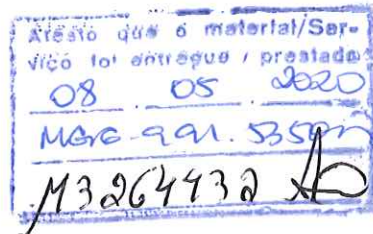 Atesto que o material/Ser-
viço foi entregue / prestado
08 05 2020
M3264432